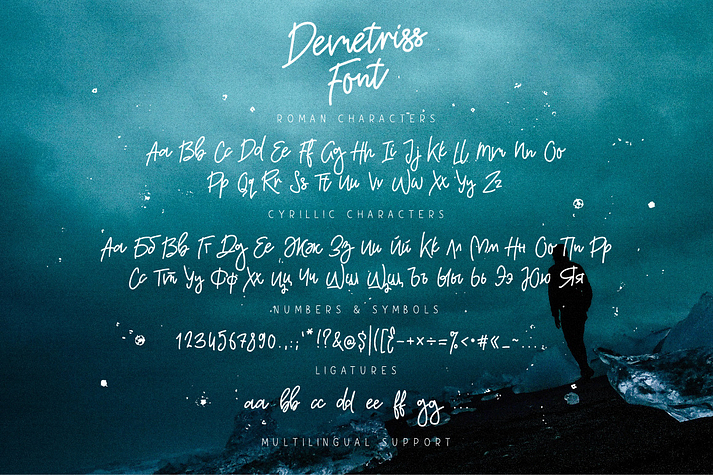 Demetriss
Font
ROMAN CHARACTERS
Aa Bb Cc Dd Ee Ff Gg Hh Ii Jj Kk Ll Mm Nn Oo
Pp Qq Rr Ss Tt Uu Vv Ww Xx Yy Zz
CYRILLIC CHARACTERS
Аа Бб Вв Гг Дд Ее Жж Зз Ии Йй Кк Лл Мм Нн Оо Пп Рр
Сс Тт Уу Фф Хх Цц Чч Шш Щщ Ъъ Ыы Ьь Ээ Юю Яя
NUMBERS & SYMBOLS
1234567890.,:;'*!?&@$|([{-+×÷=%<•#«_~...
LIGATURES
aa bb cc dd ee ff gg
MULTILINGUAL SUPPORT